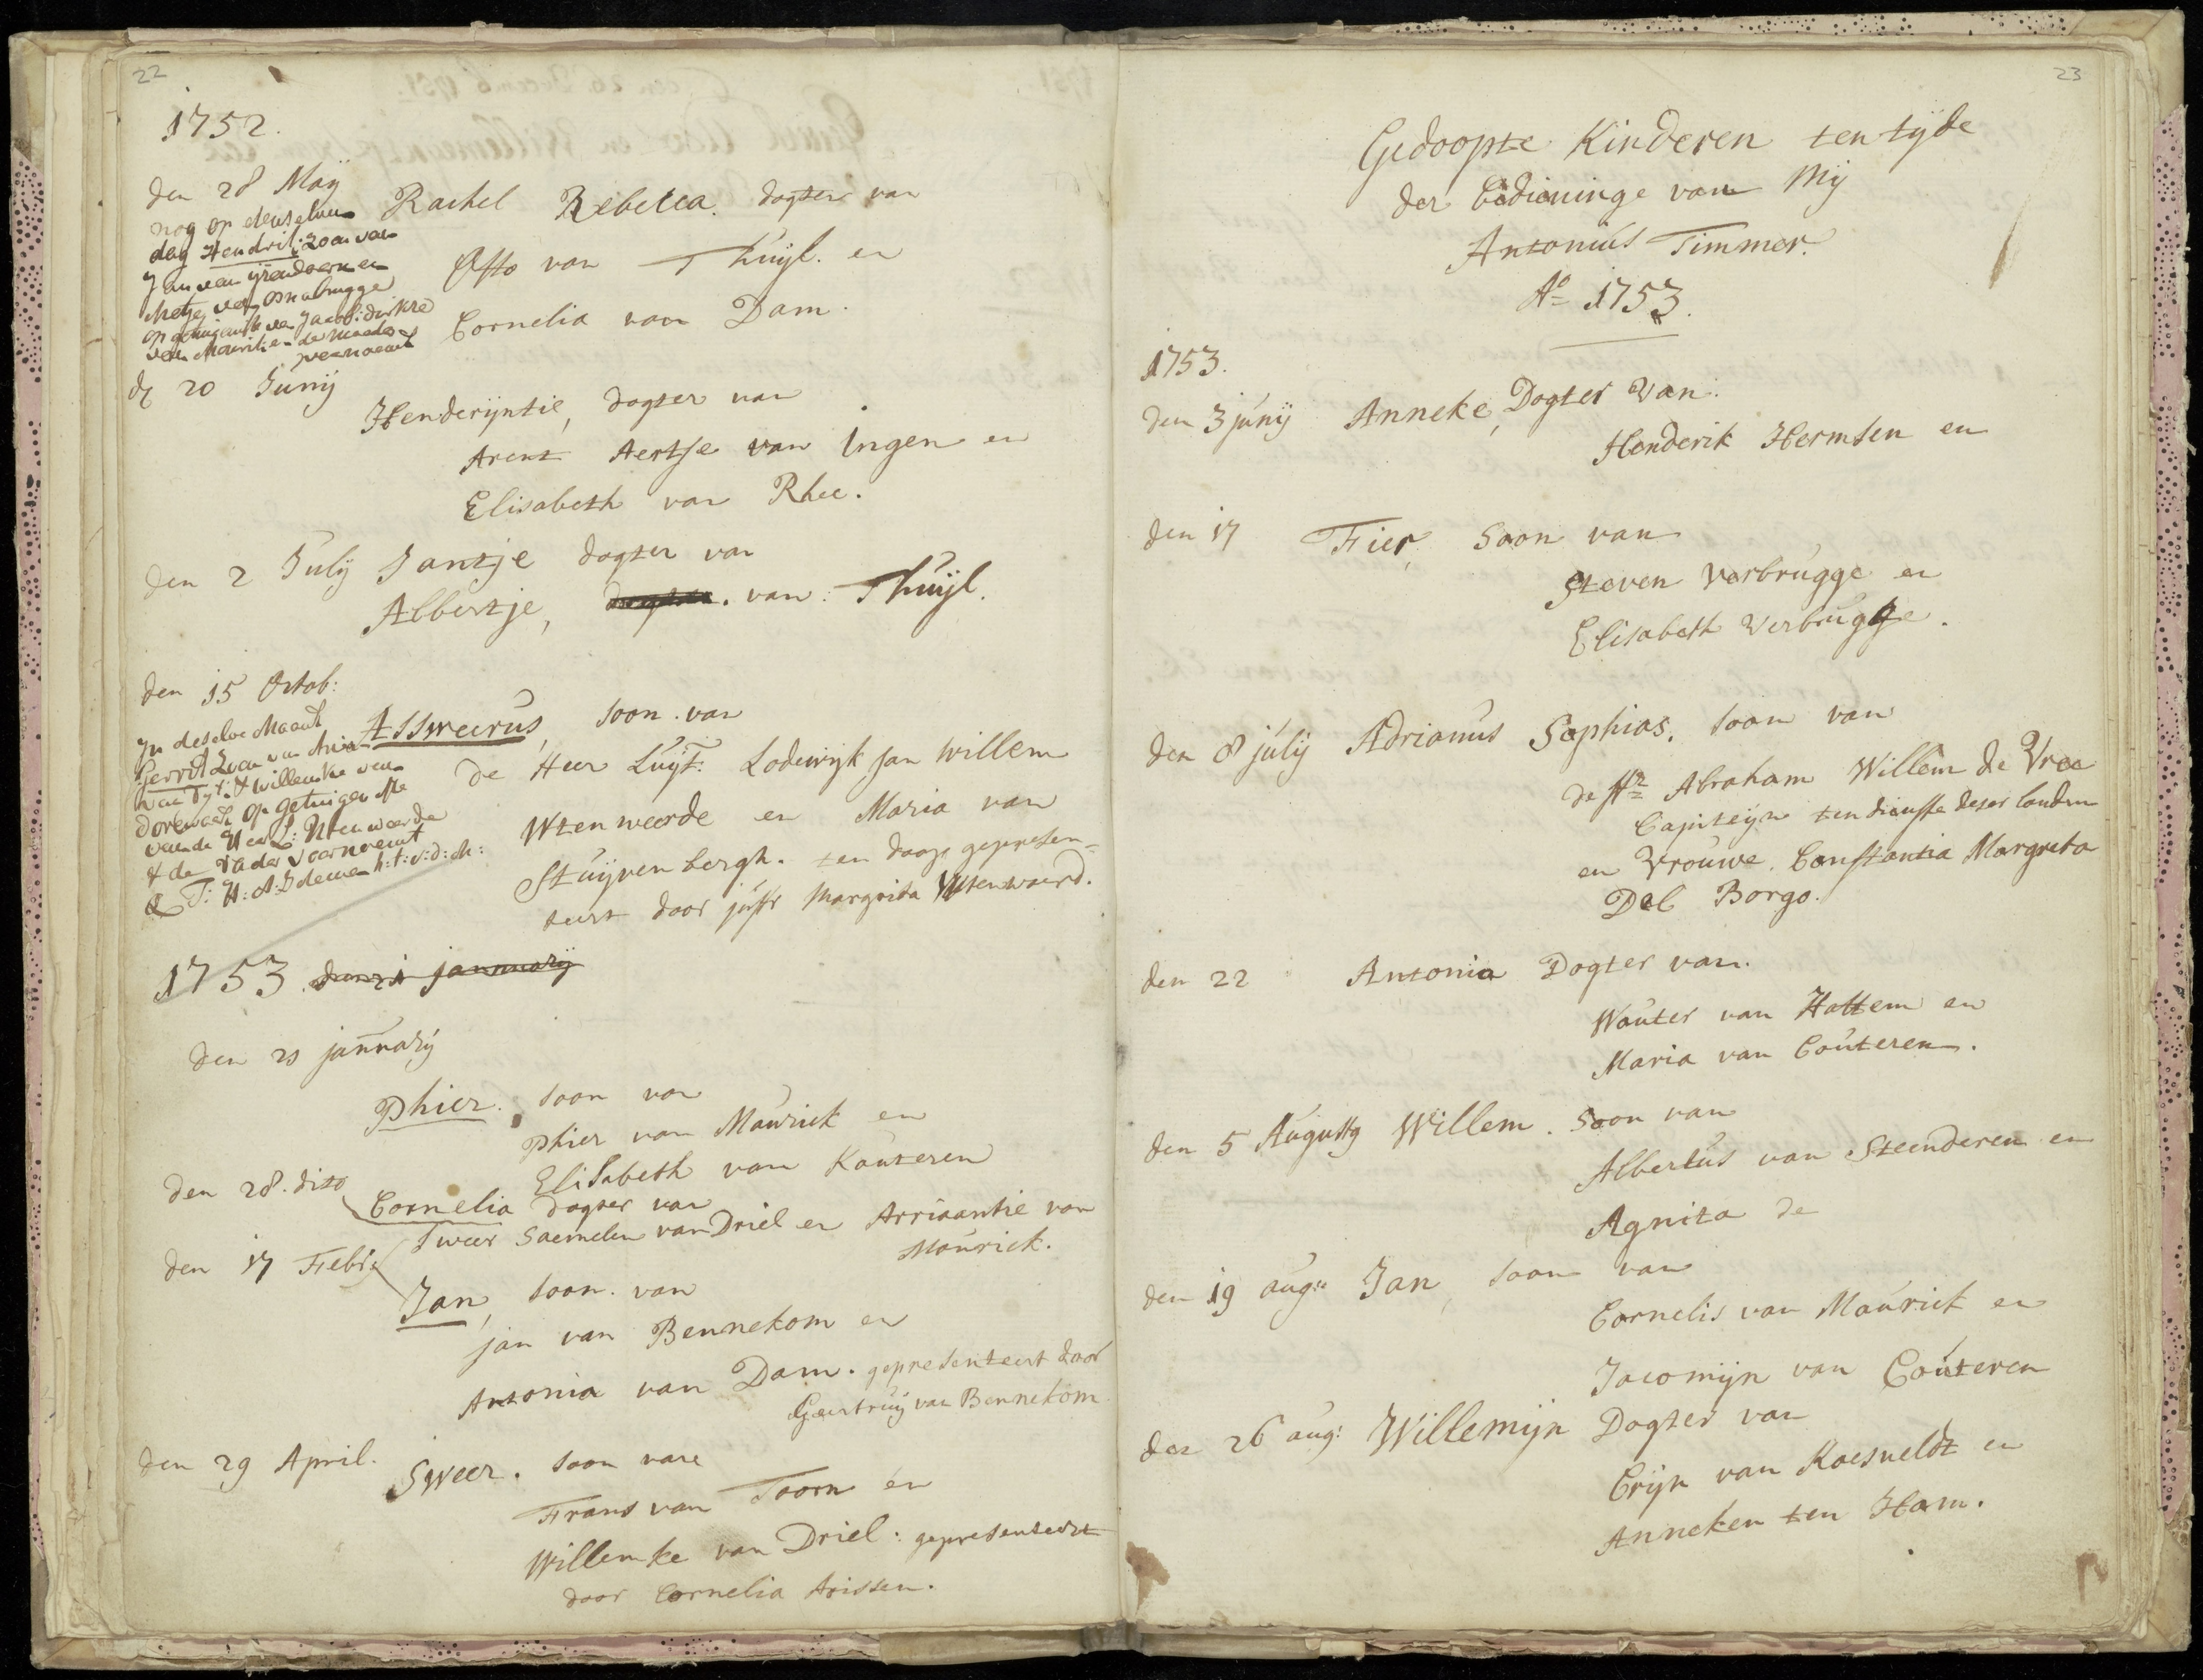 22
1752.
den 28 Maÿ
Rachel Rebecca. dogter van
Otto van Thuÿl. en
Cornelia van Dam.
nog op denselven
dag Hendrik: Zoon van
Jan van en
Metje van Osnabrugge
op getuigenis van Jacob: dirkze
van Maurik en de moeder
voornoemt
d 20 Junÿ
Henderijntie, dogter van
Arent Aertse van Ingen en
Elisabeth van Rhee.
den 2 Julÿ Jantje dogter van
Albertje, dogter. van Thuÿl.
den 15 Octob:
Assweerus, soon. van
de Heer Luÿt: Lodewijk Jan Willem
Wtenweerde en Maria van
Stuÿvenbergh. ten doop gepresen=
teert door juffr Margrita Wtenweerd.
In deselve Maand
Gerrit Zoon van
van & Willemke van
op getuigenisse
van de Heer L: Utenweerde
& de Vader voornoemt
1753. den 21 jannuarÿ
den 21 jannuarÿ
Phier. soon van
Phier van Maurick en
Elisabeth van Kouteren
den 28. dito
Cornelia dogter van
Sweer Saemelen van Driel en Arriaantie van
Maurick.
den 17 Febr
Jan, soon. van
jan van Bennekom en
Antonia van Dam. gepresenteert door
Geertruÿ van Bennekom
den 29 April.
Sweer. soon van
Frans van Toorn en
Willemke van Driel: gepresenteert
door Cornelia Arissen.
23
Gedoopte Kinderen ten tÿde
der bedieninge van Mÿ
Antonius Timmer.
Ao 1753.
1753.
den 3 junÿ Anneke, Dogter van.
Henderik Hermsen en
den 17 Fier, Soon van
Steven Verbrugge en
Elisabeth Verbrugge.
den 8 julÿ Adrianus Sophias. soon van
de Hr Abraham Willem de Vree
Capiteÿn ten dienste deser landen
en Vrouwe. Constantia Margreta
Del Borgo.
den 22 Antonia Dogter van.
Wouter van Hattem en
Maria van Couteren.
den 5 Augustÿ Willem. Soon van
Albertus van Steenderen en
Agnita de
den 19 aug: Jan, Soon van
Cornelis van Maurick en
Jacomijn van Couteren
den 26 aug: Willemijn Dogter van
Crijn van Roesveldt en
Anneken ten Ham.